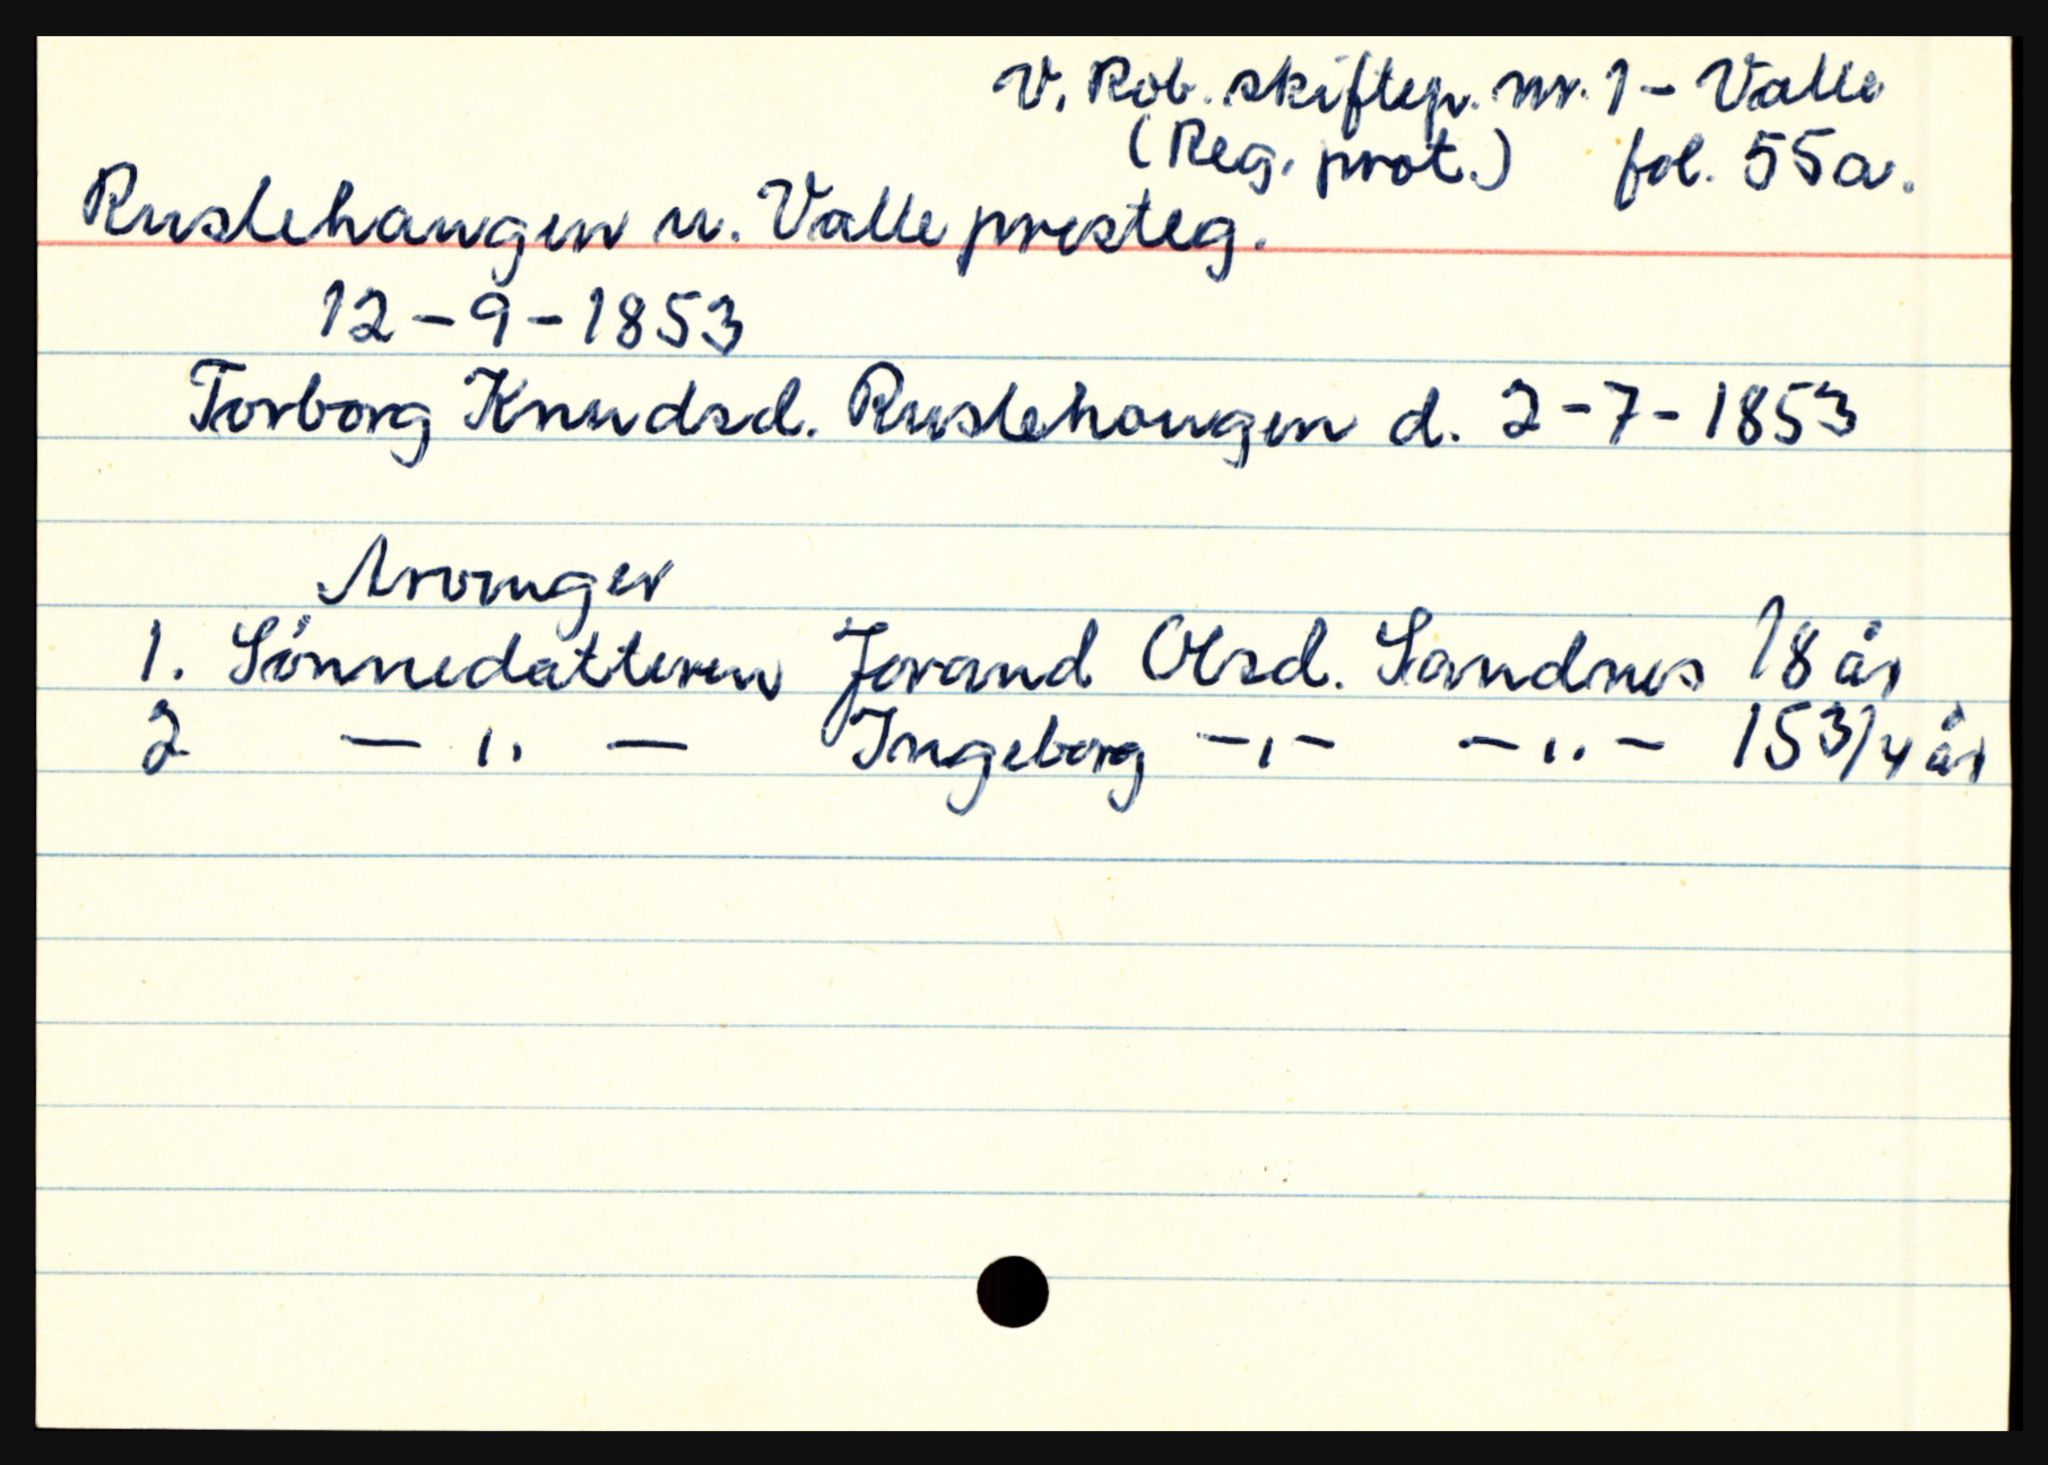 V. Rob. skiftep. nr. 1 - Valle
(Reg. prot.) fol. 55a.
Ruslehaugen u. Valle presteg.
12-9-1853
Torborg Knudsd. Ruslehaugen d. 2-7-1853
Arvinger
1. Sønnedatteren Jorand Olsd. Sandnes 18 år
2 — ,, — Ingeborg -,- -,,- 15 3/4 år